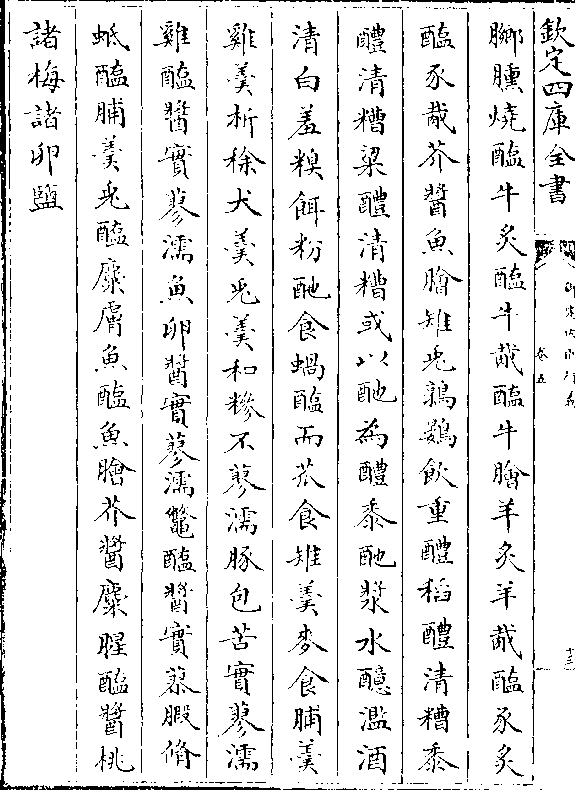 欽定四庫全書
卷五
十三
膷臐燒醢牛炙醢牛胾醢牛膾羊炙羊胾醢豕炙
醢豕胾芥醬魚膾雉兎鶉鷃飲重醴稻醴清糟黍
醴清糟粱醴清糟或以酏為醴黍酏漿水醷濫酒
清白羞糗餌粉酏食蝸醢而苽食雉羹麥食脯羹
雞羹析稌犬羹兎羹和糝不蓼濡豚包苦實蓼濡
雞醢醬實蓼濡魚卵醬實蓼濡鼈醢醬實蓼腶脩
蚳醢脯羹兎醢麋膚魚醢魚膾芥醬麋腥醢醬桃
諸梅諸卵鹽